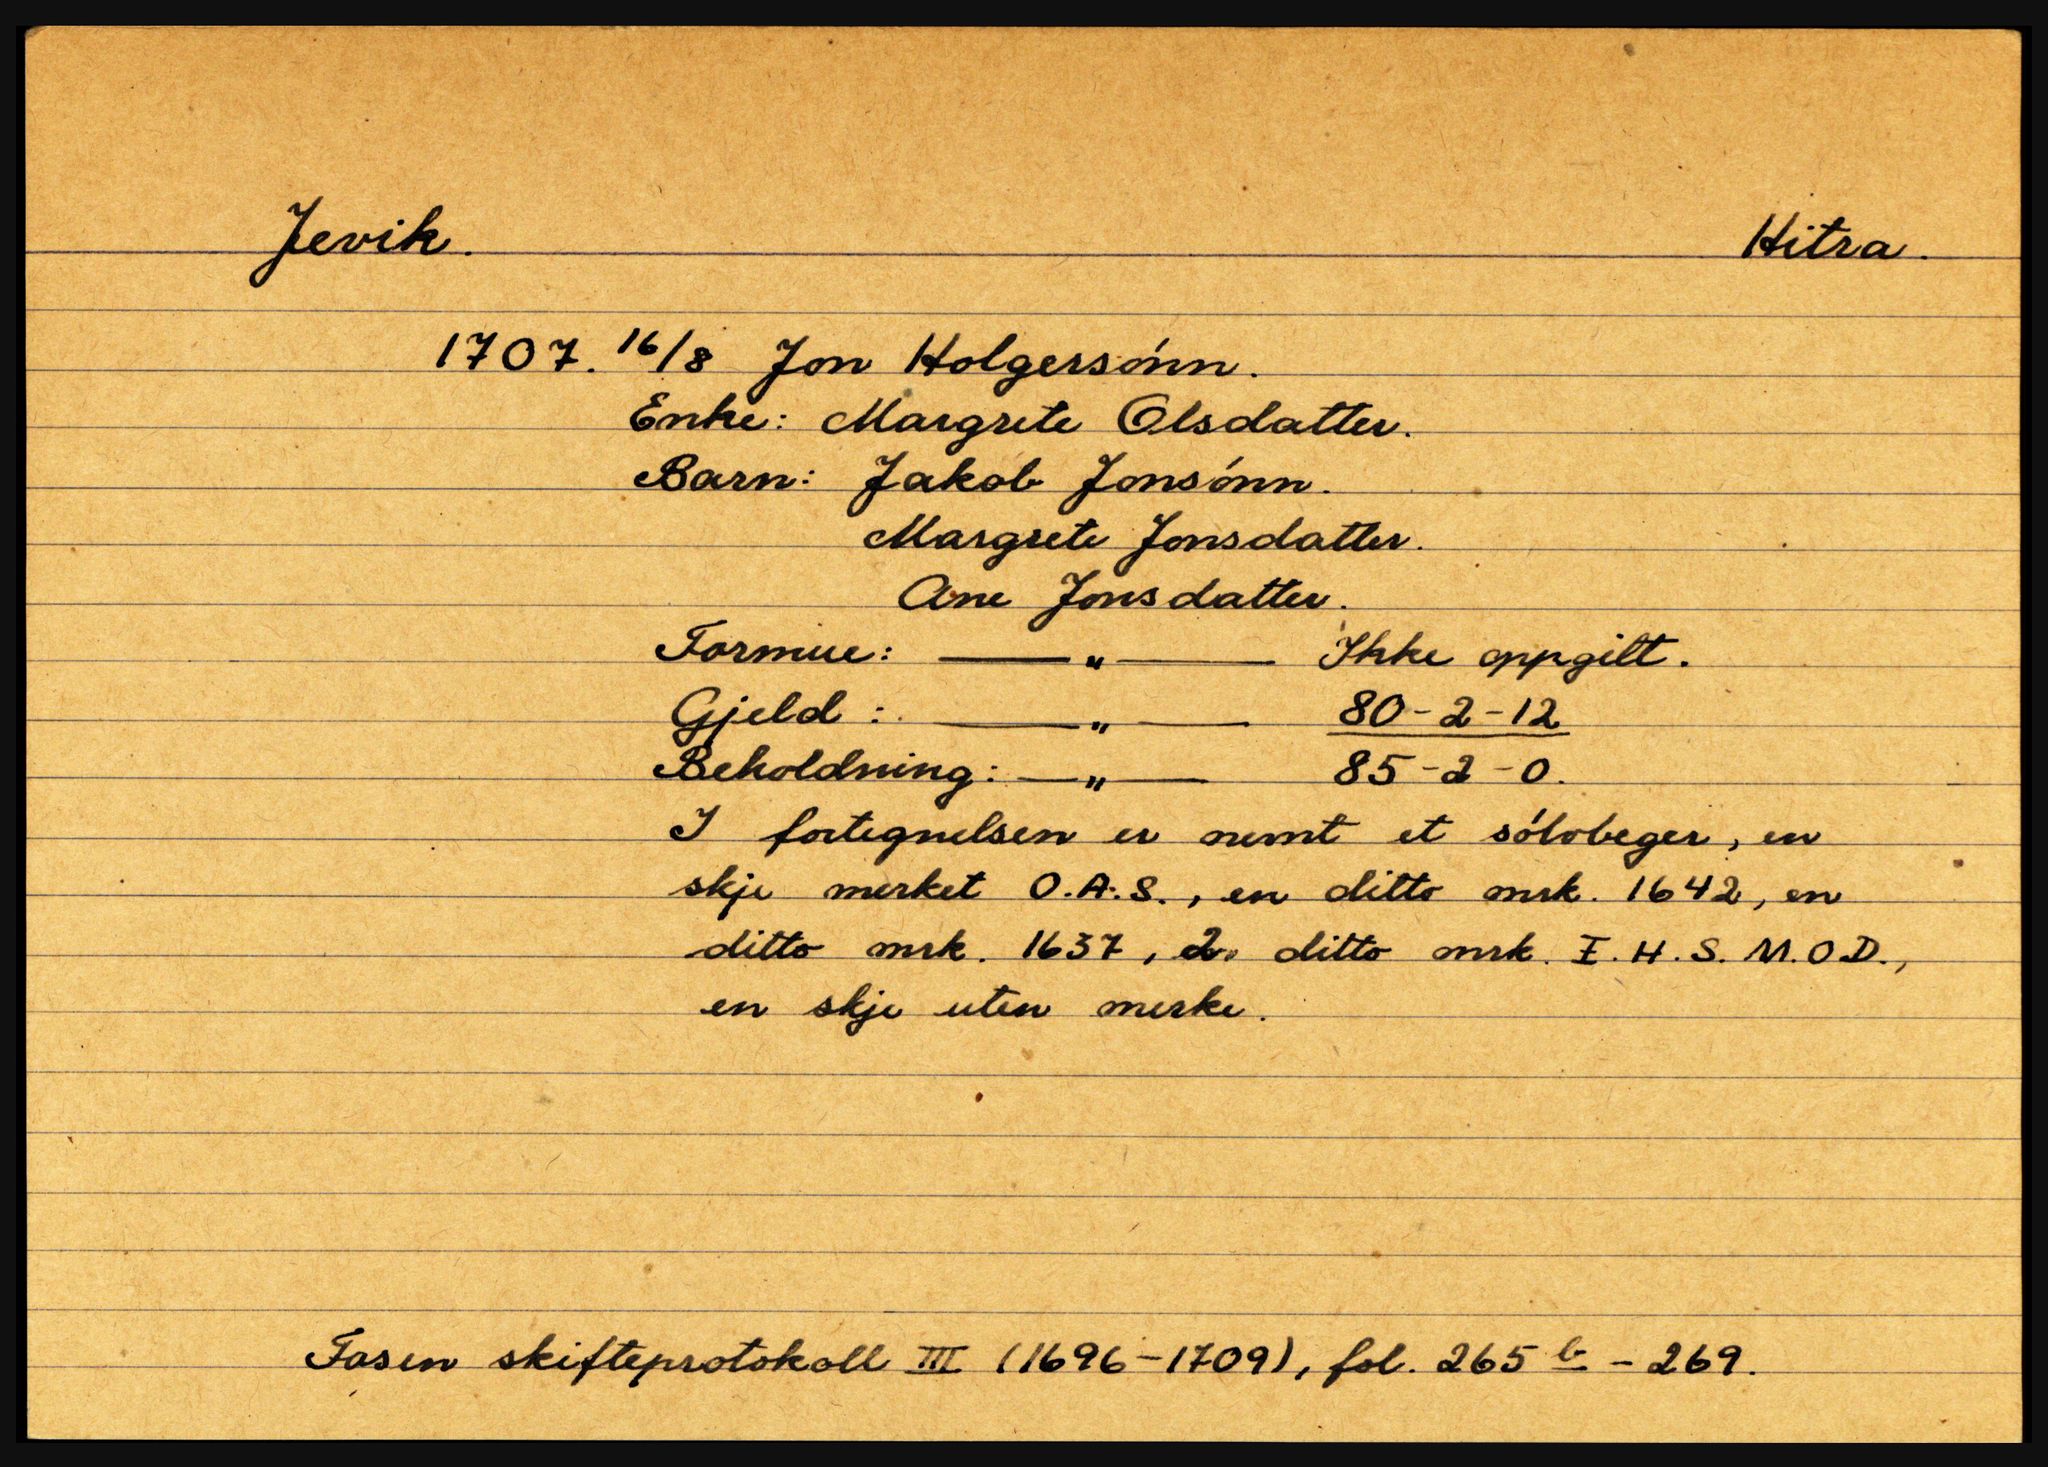 Jevik. Hitra.
1707. 16/8 Jon Holgersónn.
Enke: Margrete Olsdatter.
Barn: Jakob Jonsónn.
Margrete Jonsdatter.
Ane Jonsdatter.
Formue: — " — Ikke oppgilt.
Gjeld : — " — 80-2-12
Beholdning: — " — 85-2-0.
I fortegnelsen er nemt et sólvbeger, en
skje merket O.A.S., en ditto mrk. 1642, en
ditto mrk. 1637, 2. ditto mrk. I.H.S. M.O.D.,
en skje uten merke.
Fosen skifteprotokoll III (1696-1709), fol. 265 b - 269.